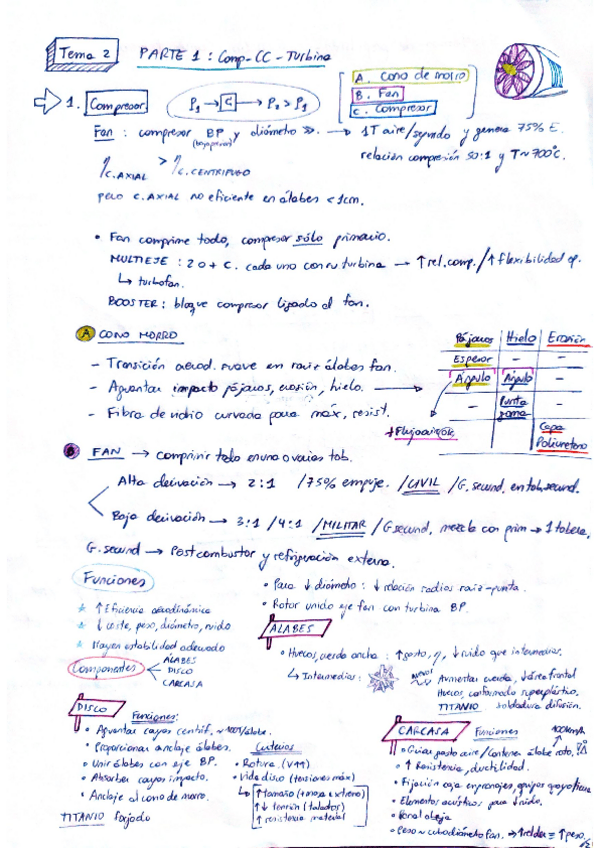 Tema 2 PARTE 1: Comp-CC-Turbina
A. Cono de morro
B. Fan
C. Compresor
1. Compresor P1 → C → P2 > P1
Fan: compresor BP y diámetro >>. → 1T aire/segundo y genera 75% E.
(baja presión)
relación compresión 50:1 y T~700°C.
η C.AXIAL > η C.CENTRIFUGO
pero C.AXIAL no eficiente en álabes < 1cm.
• Fan comprime todo, compresor sólo primario.
MULTIEJE: 2 o + C. cada uno con su turbina → ↑rel.comp./↑flexibilidad op.
↳ turbofan.
BOOSTER: bloque compresor ligado al fan.
A CONO MORRO
- Transición aerod. suave en raiz álabes fan.
- Aguantar impacto pájaros, erosión, hielo. →
- Fibra de vidrio curvada para máx. resist.
Pájaros Hielo Erosión
Espesor - -
Ángulo Ángulo -
- Punta goma
+Flujo aire ok.
Capa Poliuretano
B FAN → comprimir todo en una o varias tob.
Alta derivación → 2:1 /75% empuje. /CIVIL /G.secund. en tob.secund.
Baja derivación → 3:1 /4:1 /MILITAR /G secund. mezcla con prim → 1 tobera.
G.secund → Postcombustor y refrigeración externa.
Funciones
* ↑ Eficiencia aerodinámica
* ↓ coste, peso, diámetro, ruido
* Margen estabilidad adecuado
• Para ↓ diámetro: ↓ relación radios raiz-punta.
• Rotor unido eje fan con turbina BP.
Componentes
ÁLABES
DISCO
CARCASA
ÁLABES
• Huecos, cuerda ancha: ↑gasto, η, ↓ruido que intermedios.
↳ Intermedios:
Aumentar cuerda, ↓área frontal
Huecos, conformado superplástico.
TITANIO soldadura difusión.
DISCO
Funciones:
• Aguantar cargas centrif. ~100T/álabe.
• Proporcionar anclaje álabes.
• Unir álabes con eje BP.
• Absorber cargas impacto.
• Anclaje al cono de morro.
TITANIO forjado
Criterios
• Rotura.
• Vida disco (tensiones máx)
↳ ↑tamaño (+masa extremo)
↑↓ tensión (taladros)
↑ resistencia material
CARCASA Funciones
• Guiar gasto aire/Contener álabe roto.
• ↑ Resistencia, ductilidad.
• Fijación caja engranajes, grupos apoyo
• Elementos acústicos para ↓ruido.
• Panal abeja
• Peso ~ cubo diámetro fan.
↑peso.